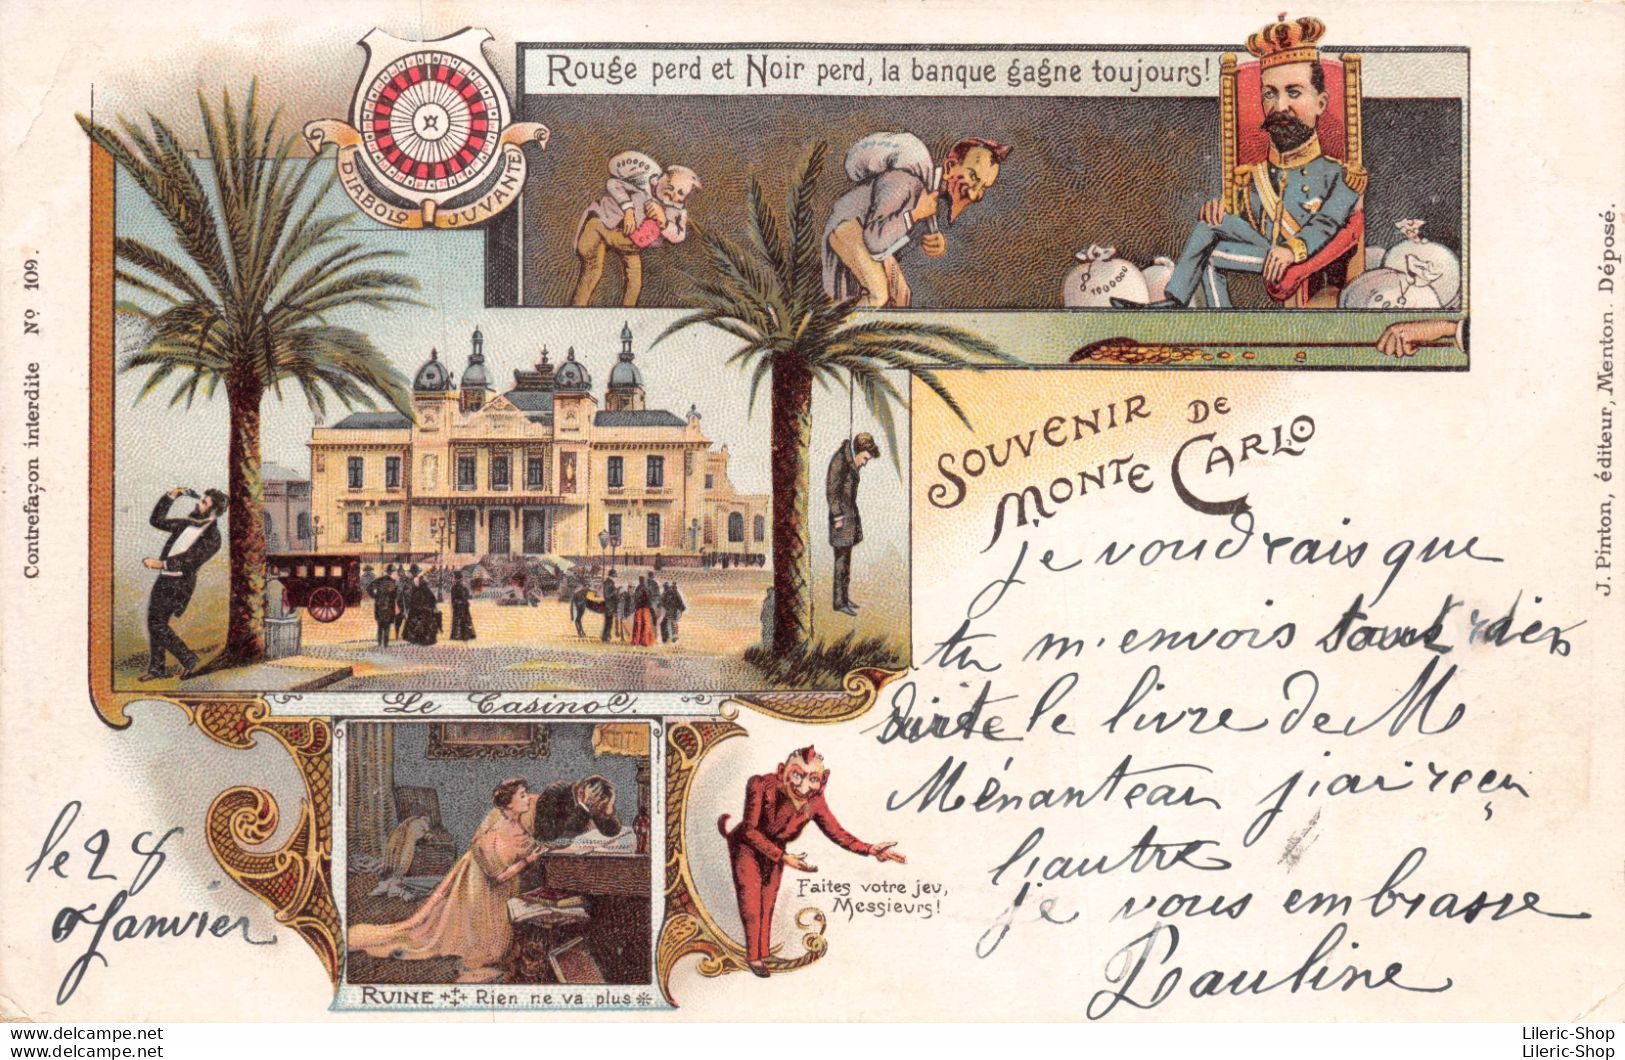 Rouge perd et Noir perd, la banque gagne toujours!
DIABOLO JUVANTE
000000
100000
Contrefaçon interdite Nº 109.
J. Pinton, éditeur, Menton. Déposé.
SOUVENIR DE
MONTE CARLO
Le Casino.
RUINE Rien ne va plus
Faites votre jeu,
Messieurs!
le 28
Janvier
je voudrais que
tu m'envois
suite le livre de M
Ménanteau j'ai reçu
l'autre
je vous embrasse
Pauline
Lileric-Shop
Lileric-Shop
https://www.delcampe.net/store/Lileric-Shop
https://www.delcampe.net/store/Lileric-Shop